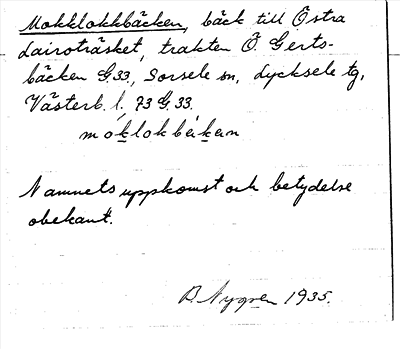 Mokklokkbäcken, bäck till Östra
Lairoträsket, trakten Ö. Gerts-
bäcken G.33, Sorsele sn, Lycksele tg,
Västerb. l. 73 G. 33.
móklokbèkan
Namnets uppkomst och betydelse
obekant.
B. Nygren 1935.